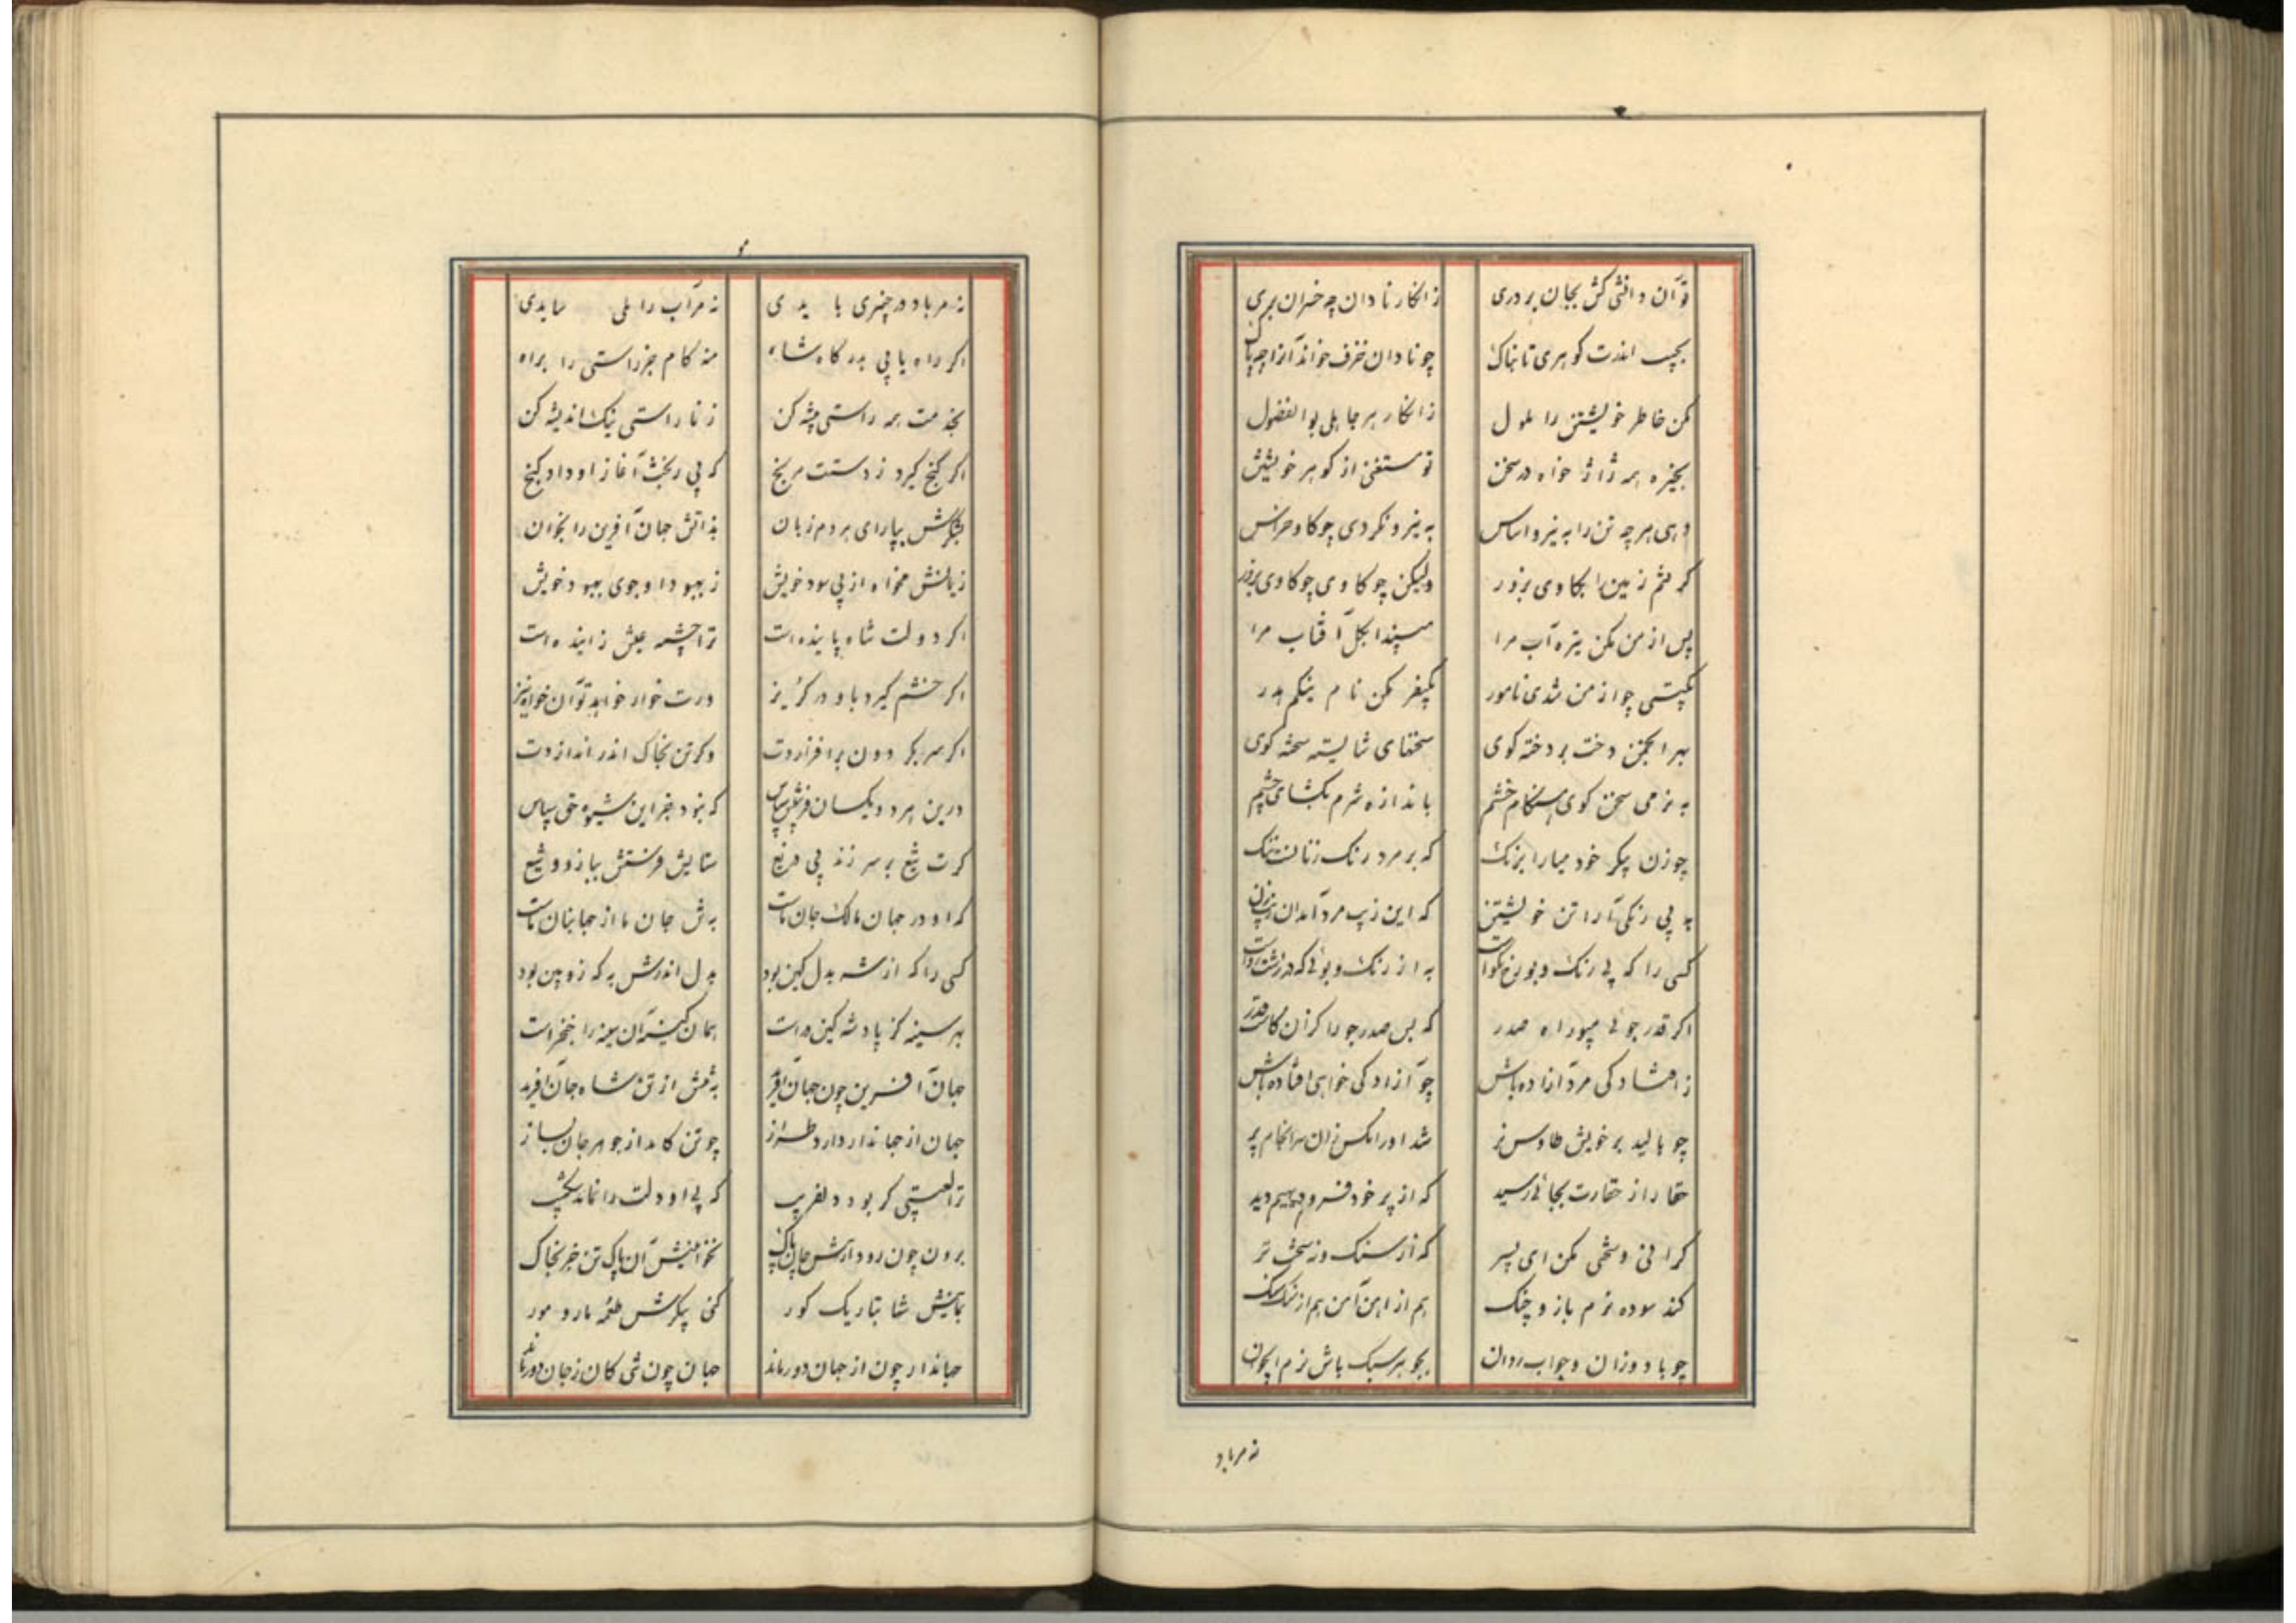 تو آن دانشی کش بجان پروری زانکار نادان چه خسران بری
بجیب اندرت کوهری تابناک چو نادان خزف خواند آنرا چه باک
مکن خاطر خویشتن را ملول زانکار هر جاهل بوالفضول
بخیره همه ژاژ خواه در سخن تو مستغنی از کوهر خویشتن
دهی هر چه تن را به نیرو اساس به نیرو نکردی چو کاو خراس
کرفتم زمین را بکاوی بزور ولیکن چو کاوی چو کاوی بزور
پس از من مکن تیره آب مرا میندا بکل آفتاب مرا
بکیتی چو از من شدی نامور بکیفر مکن نام نیکم هدر
بهر انجمن دخت پردخته کوی سخنهای شایسته سخته کوی
به نرمی سخن کوی هنکام خشم باندازه شرم بکشای چشم
چو زن پیکر خود میارا برنک که بر مرد رنک زنانست ننک
به بی رنکی آرا تن خویشتن که این زیب مرد آمد آن زیب زن
کسی را که بی رنک و بو رخ نکواست به از رنک و بوئی که در زشت روست
اکر قدر جوئی مپو راه صدر که بس صدر جو را کزان کاست قدر
ز افتادکی مرد آزاده باش چو آزادکی خواهی افتاده باش
چو بالید بر خویش طاوس نر شد او را مکس ران سرانجام پر
حقار از حقارت بجائی رسید که از پر خود فسر و دیهیم دید
کرانی و سختی مکن ای پسر که از سنک وز سخت تر
کند سوده نرم باز و چنک هم از آهن آهن هم از سنک سنک
چو باد وزان و چو آب روان بجوهر سبک باش نرم ایجوان
نه مر باد
نه مر باد در چنبری بایدی نه مر آب را ملی سایدی
اکر راه یابی بدرکاه شاه منه کام جز راستی را براه
بخدمت همه راستی پیشه کن ز ناراستی نیک اندیشه کن
اکر کنج کیرد ز دستت مرنج که بی رنجت آغاز او داد کنج
بشکرش بیارای هر دم زبان بذاتش جهان آفرین را بخوان
زیانش مخواه از پی سود خویش ز بهبود او جوی بهبود خویش
اکر دولت شاه پاینده است ترا چشمه عیش زاینده است
اکر خشم کیرد باو در کریز ورت خوار خواهد تو آن خواه نیز
اکر سر بکردون برافرازدت وکر تن بخاک اندر اندازدت
درین هر دو یکسان فرستش سپاس که نبود جز این شیوه حق سپاس
کرت تیغ بر سر زند بی دریغ ستایش فرستش ببازو و تیغ
که او در جهان مالک جان ماست بهش جان ما از جهانبان ماست
کسی را که از شه بدل کین بود بدل اندرش به که زوبین بود
بهر سینه کز پادشه کین دراست همان کینه آن سینه را خنجر است
جهان آفرین چون جهان آفرید بتنش از تن شاه جان آفرید
جهان از جهاندار دارد طراز چو تن کامد از جوهر جان بساز
ترا لعبتی کر بود دلفریب که بی او دلت را نماند شکیب
برون چون رود از تنش جان پاک نخواهیش آن پاک تن جز بخاک
بمانیش شا بتاریک کور کنی پیکرش طعمه مار و مور
جهاندار چون از جهان دور ماند جهان چون تنی کان ز جان دور ماند